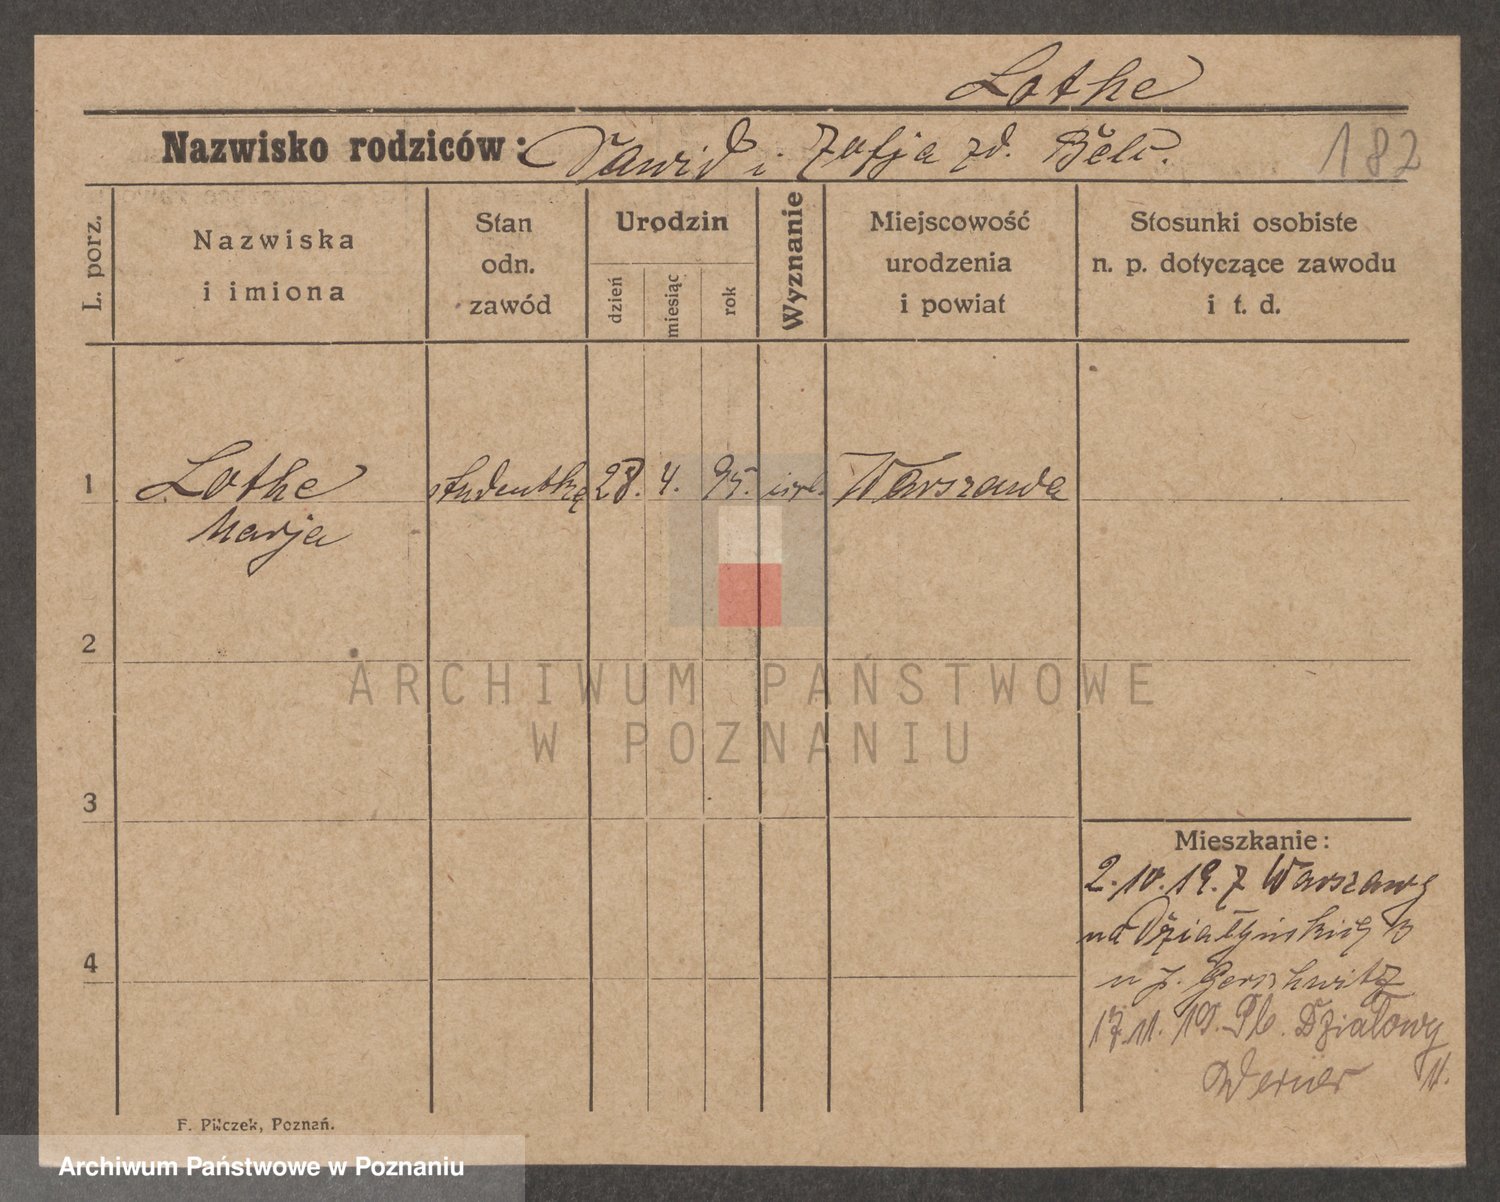 Lothe
Nazwisko rodziców: Dawid i Zofja zd.
182
L. porz.
Nazwiska i imiona
Stan odn. zawód
Urodzin
dzień
miesiąc
rok
Wyznanie
Miejscowość urodzenia i powiat
Stosunki osobiste n. p. dotyczące zawodu i t. d.
1 Lothe studentka 28. 4. 95. Warszawa
Marja
2
ARCHIWUM PAŃSTWOWE
W POZNANIU
3
Mieszkanie:
2.10.19. z Warszawy
na Działyńskich
4
u J.
17.11.19. Pl. Działowy
Werner 11.
F. Pilczek, Poznań.
Archiwum Państwowe w Poznaniu